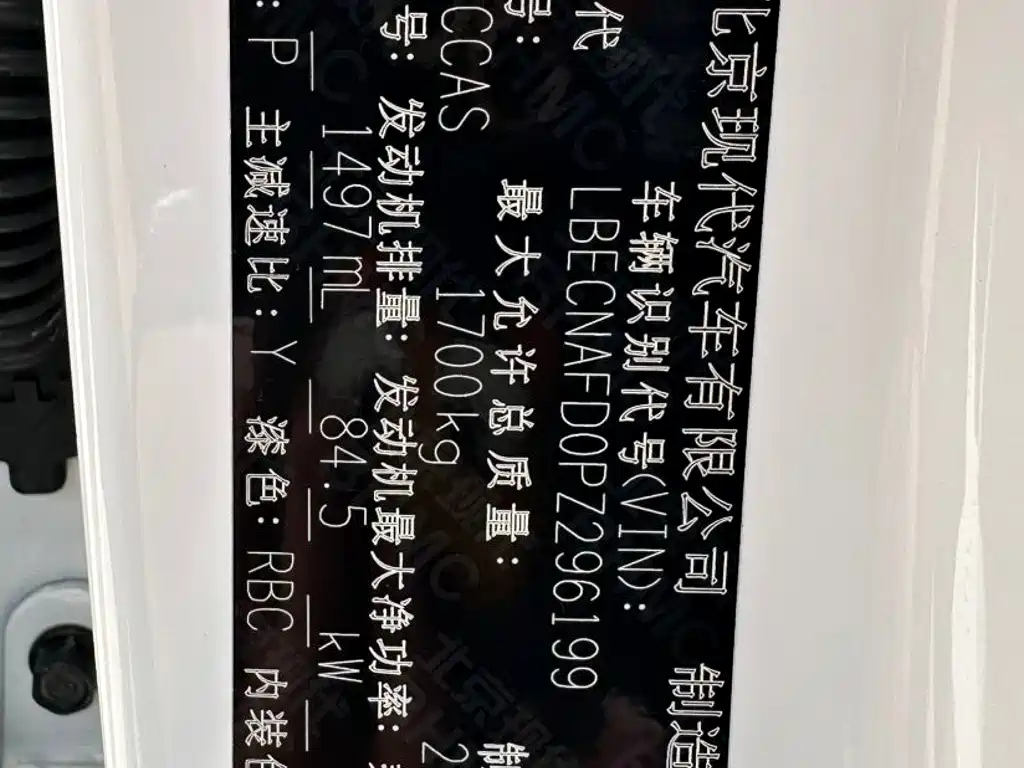 北京现代汽车有限公司 制造
代 车辆识别代号(VIN):
LBECNAFD0PZ296199
号: 最大允许总质量: 制
CCAS 1700kg 2
号: 发动机排量: 发动机最大净功率:
1497mL 84.5 kW
: P 主减速比: Y 漆色: RBC 内装色